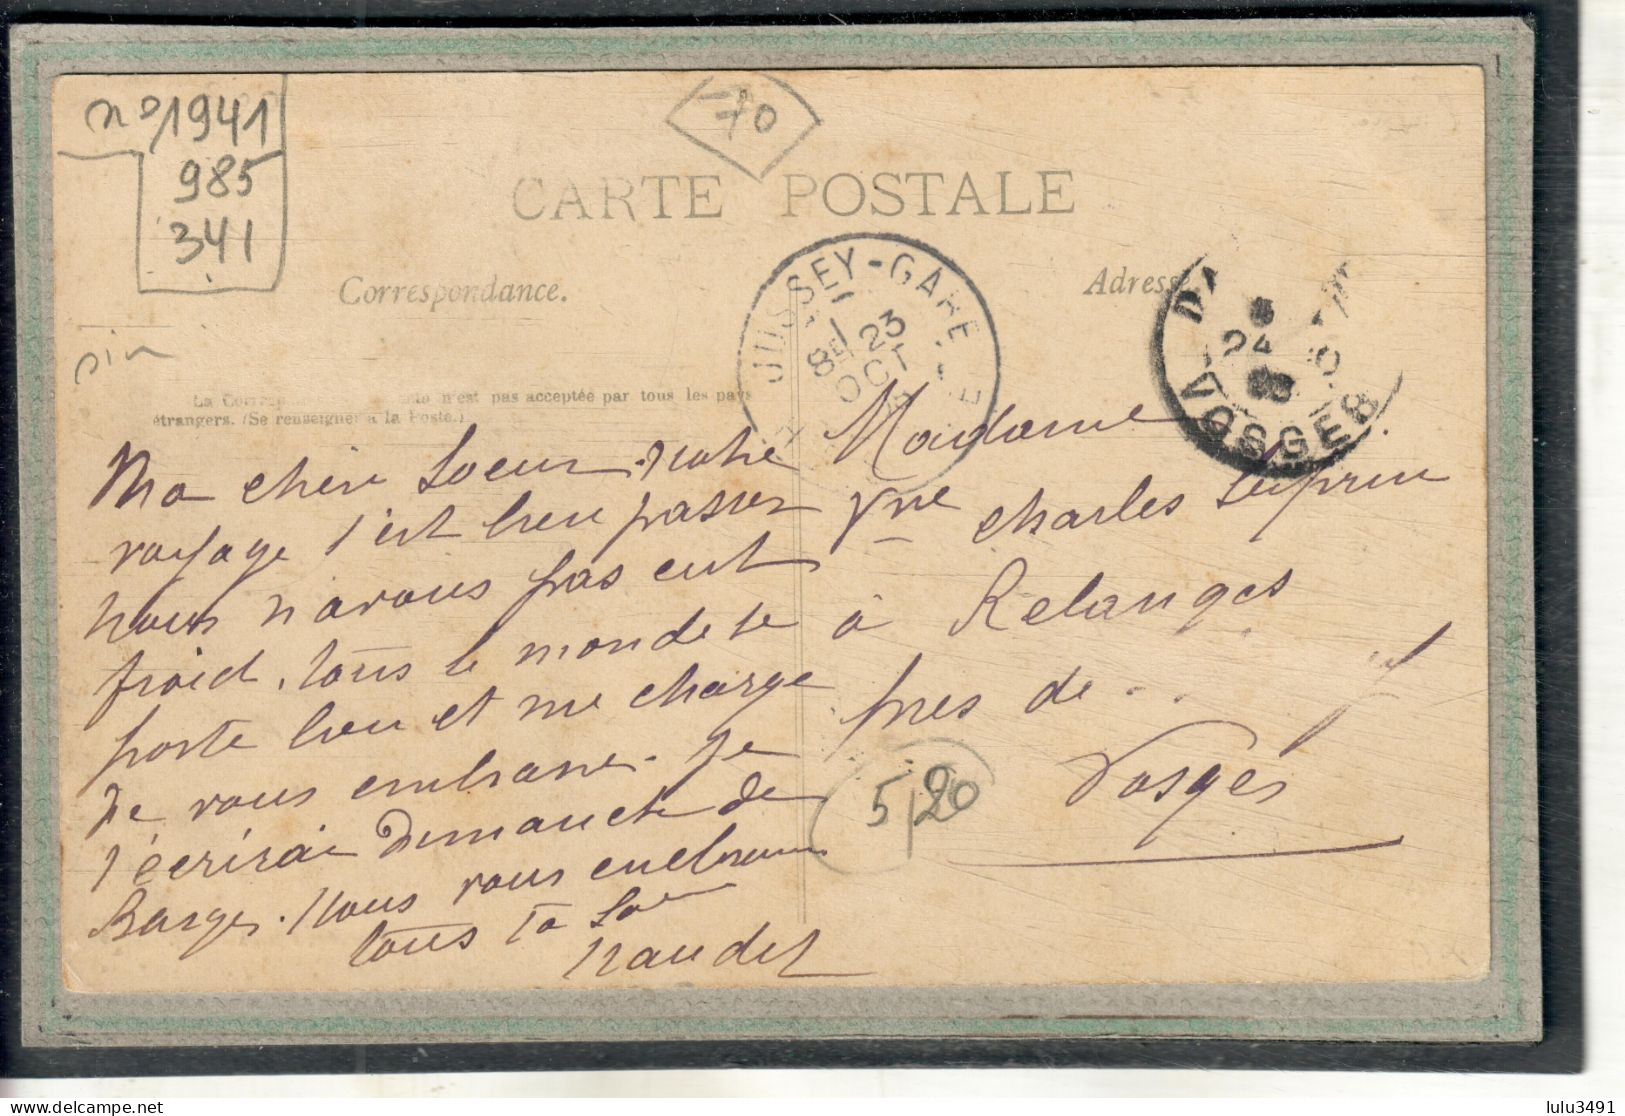 no 1941
985
341
70
CARTE POSTALE
Correspondance.
Adresse
JUSSEY-GARE
1
8E 23
OCT
DA
24
VOSGES
oin
La Corresp n'est pas acceptée par tous les pays
étrangers. (Se renseigner à la Poste.)
Ma chère Soeur notre
voyage s'est bien passer
nous n'avons pas eut
froid. tous le monde se
porte bien et me charge
de vous embrasser. Je
t'écrirai dimanche de
Barges. Nous vous embrassons
tous Ta Soeur
Naudet
Madame
Vve Charles
à Relanges
près de ...
Vosges
5/20
lulu3491